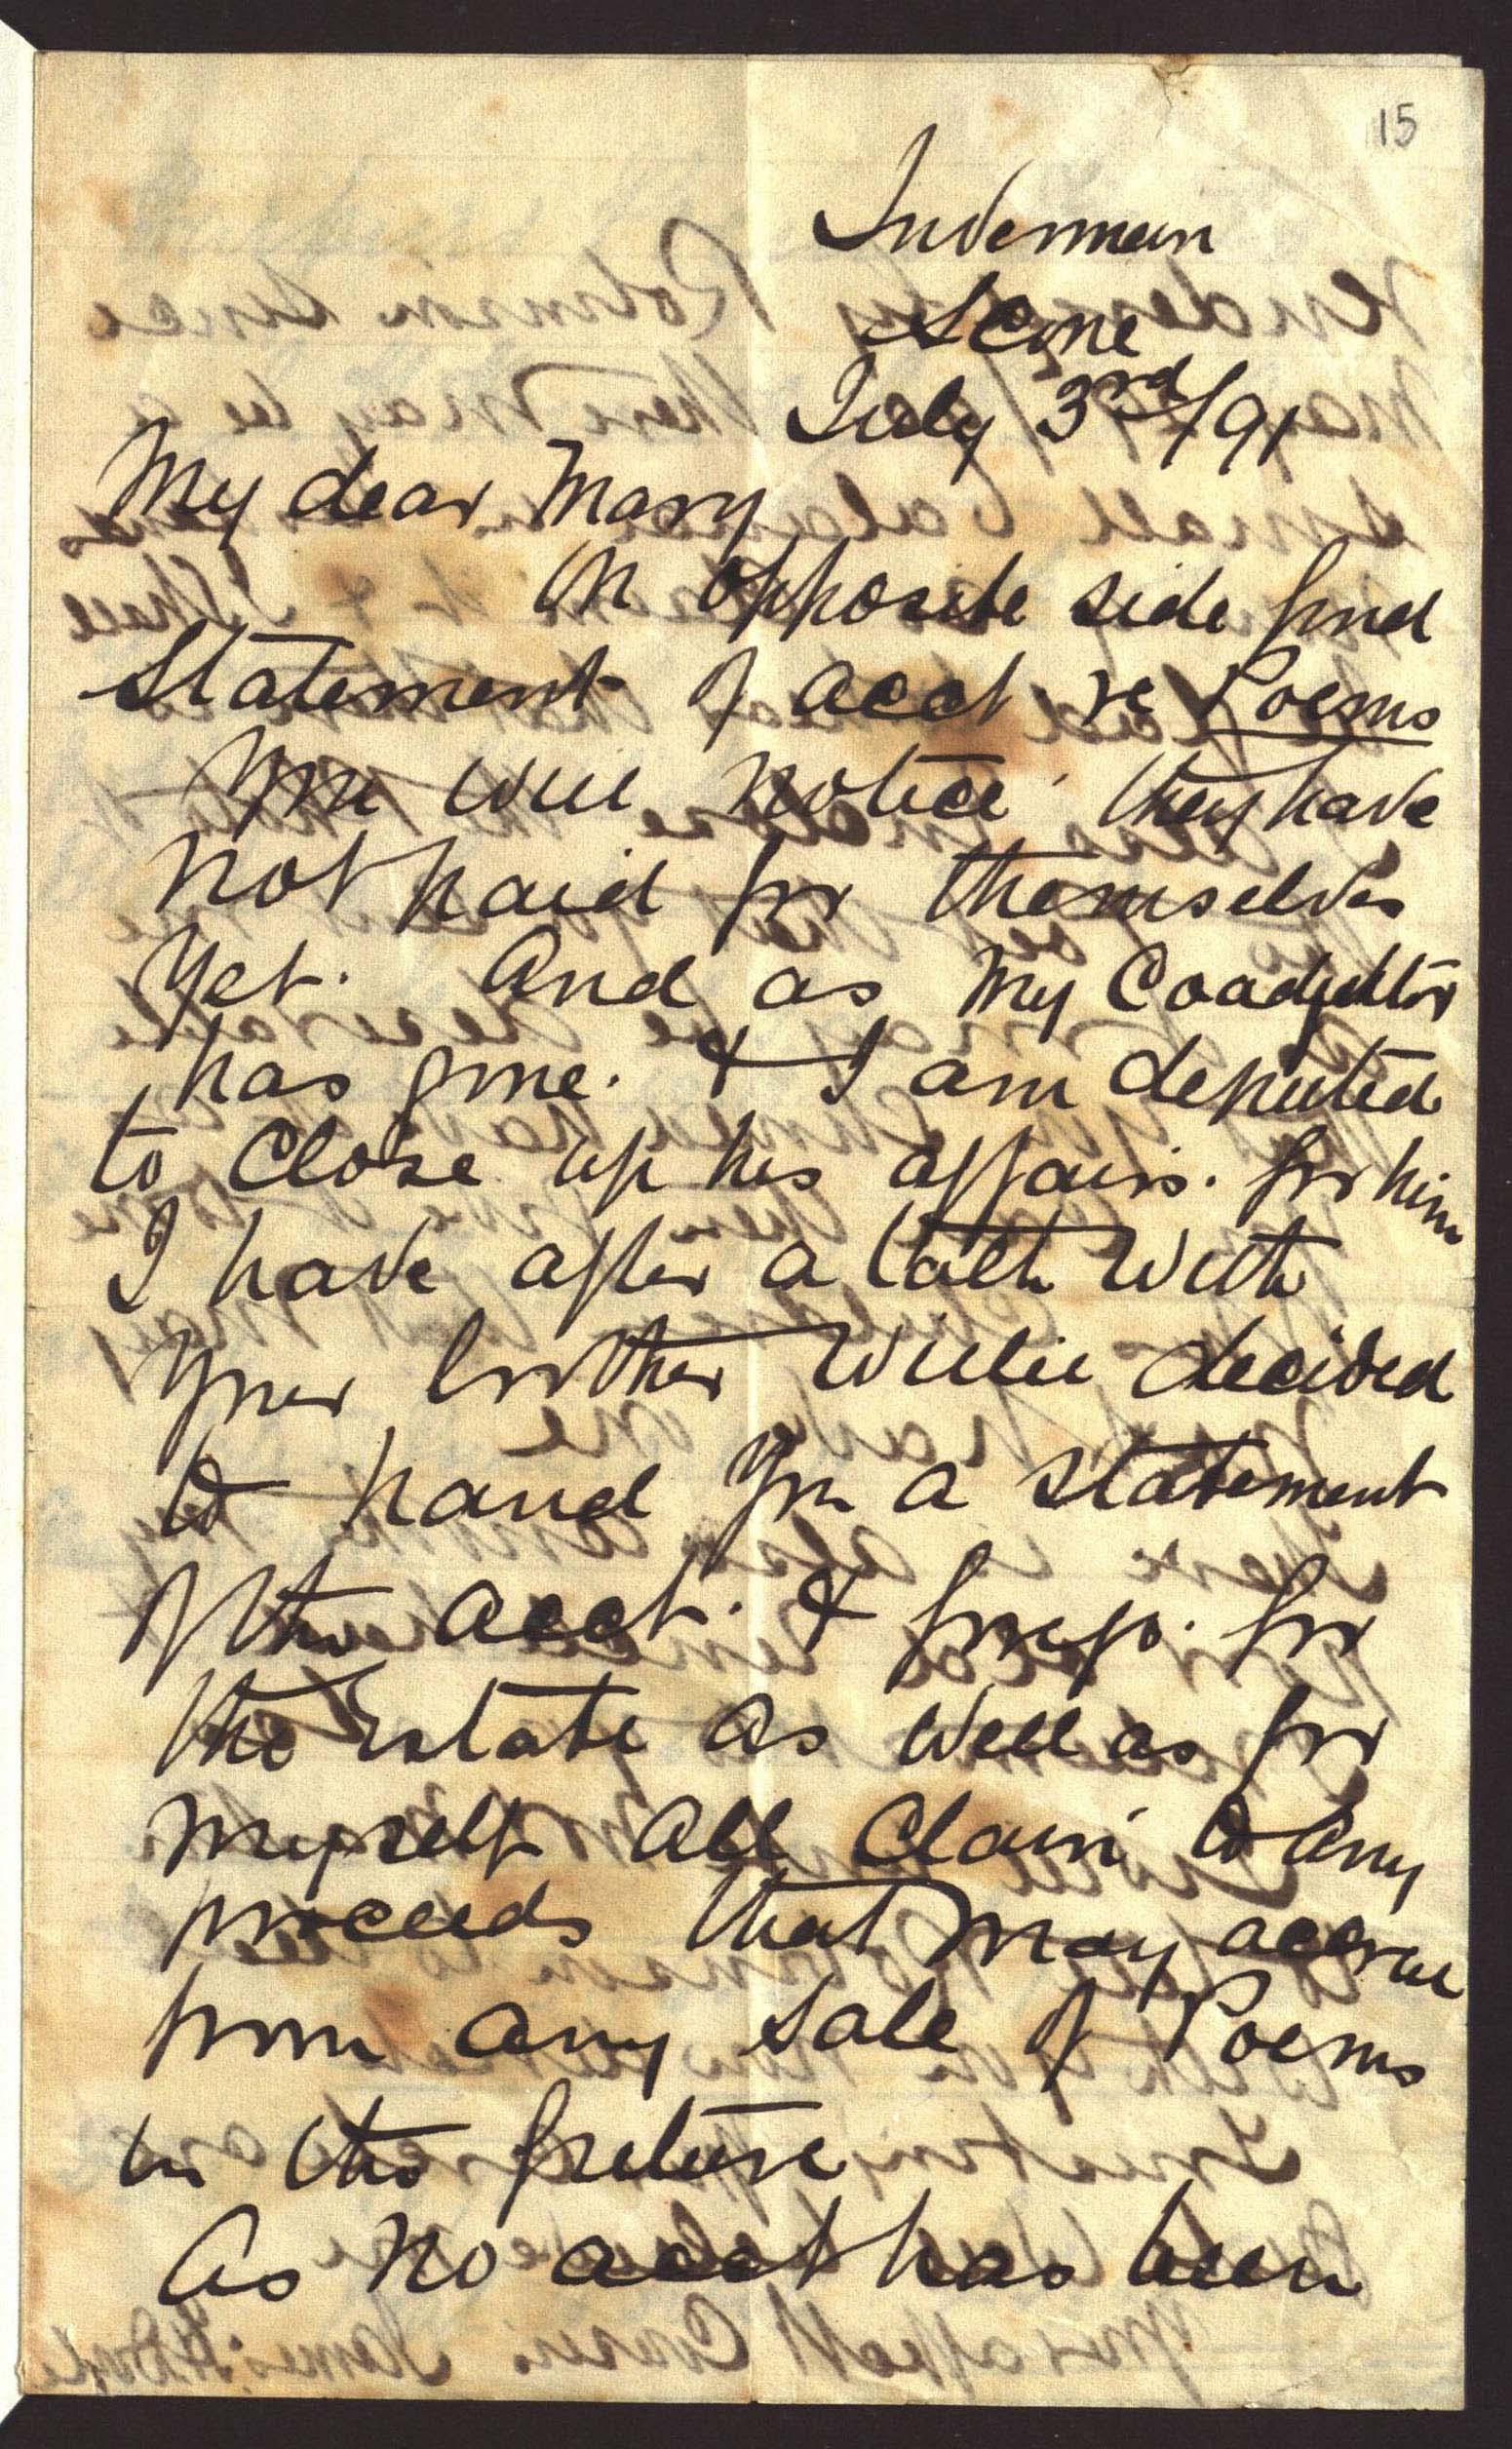 15
Invermein
Scone
July 3rd/91
My dear Mary
On opposite side find
Statement of acct re Poems
You will notice they have
not paid for themselves
Yet. And as my Coadjutor
has gone. & I am deputed
to Close up his affairs. for him
I have after a talk with
Your brother Willie decided
to hand You a statement
of the acct. & forego. for
the estate as well as for
myself all Claim to any
proceeds that may accrue
from any sale of Poems
in the future
As no acct has been